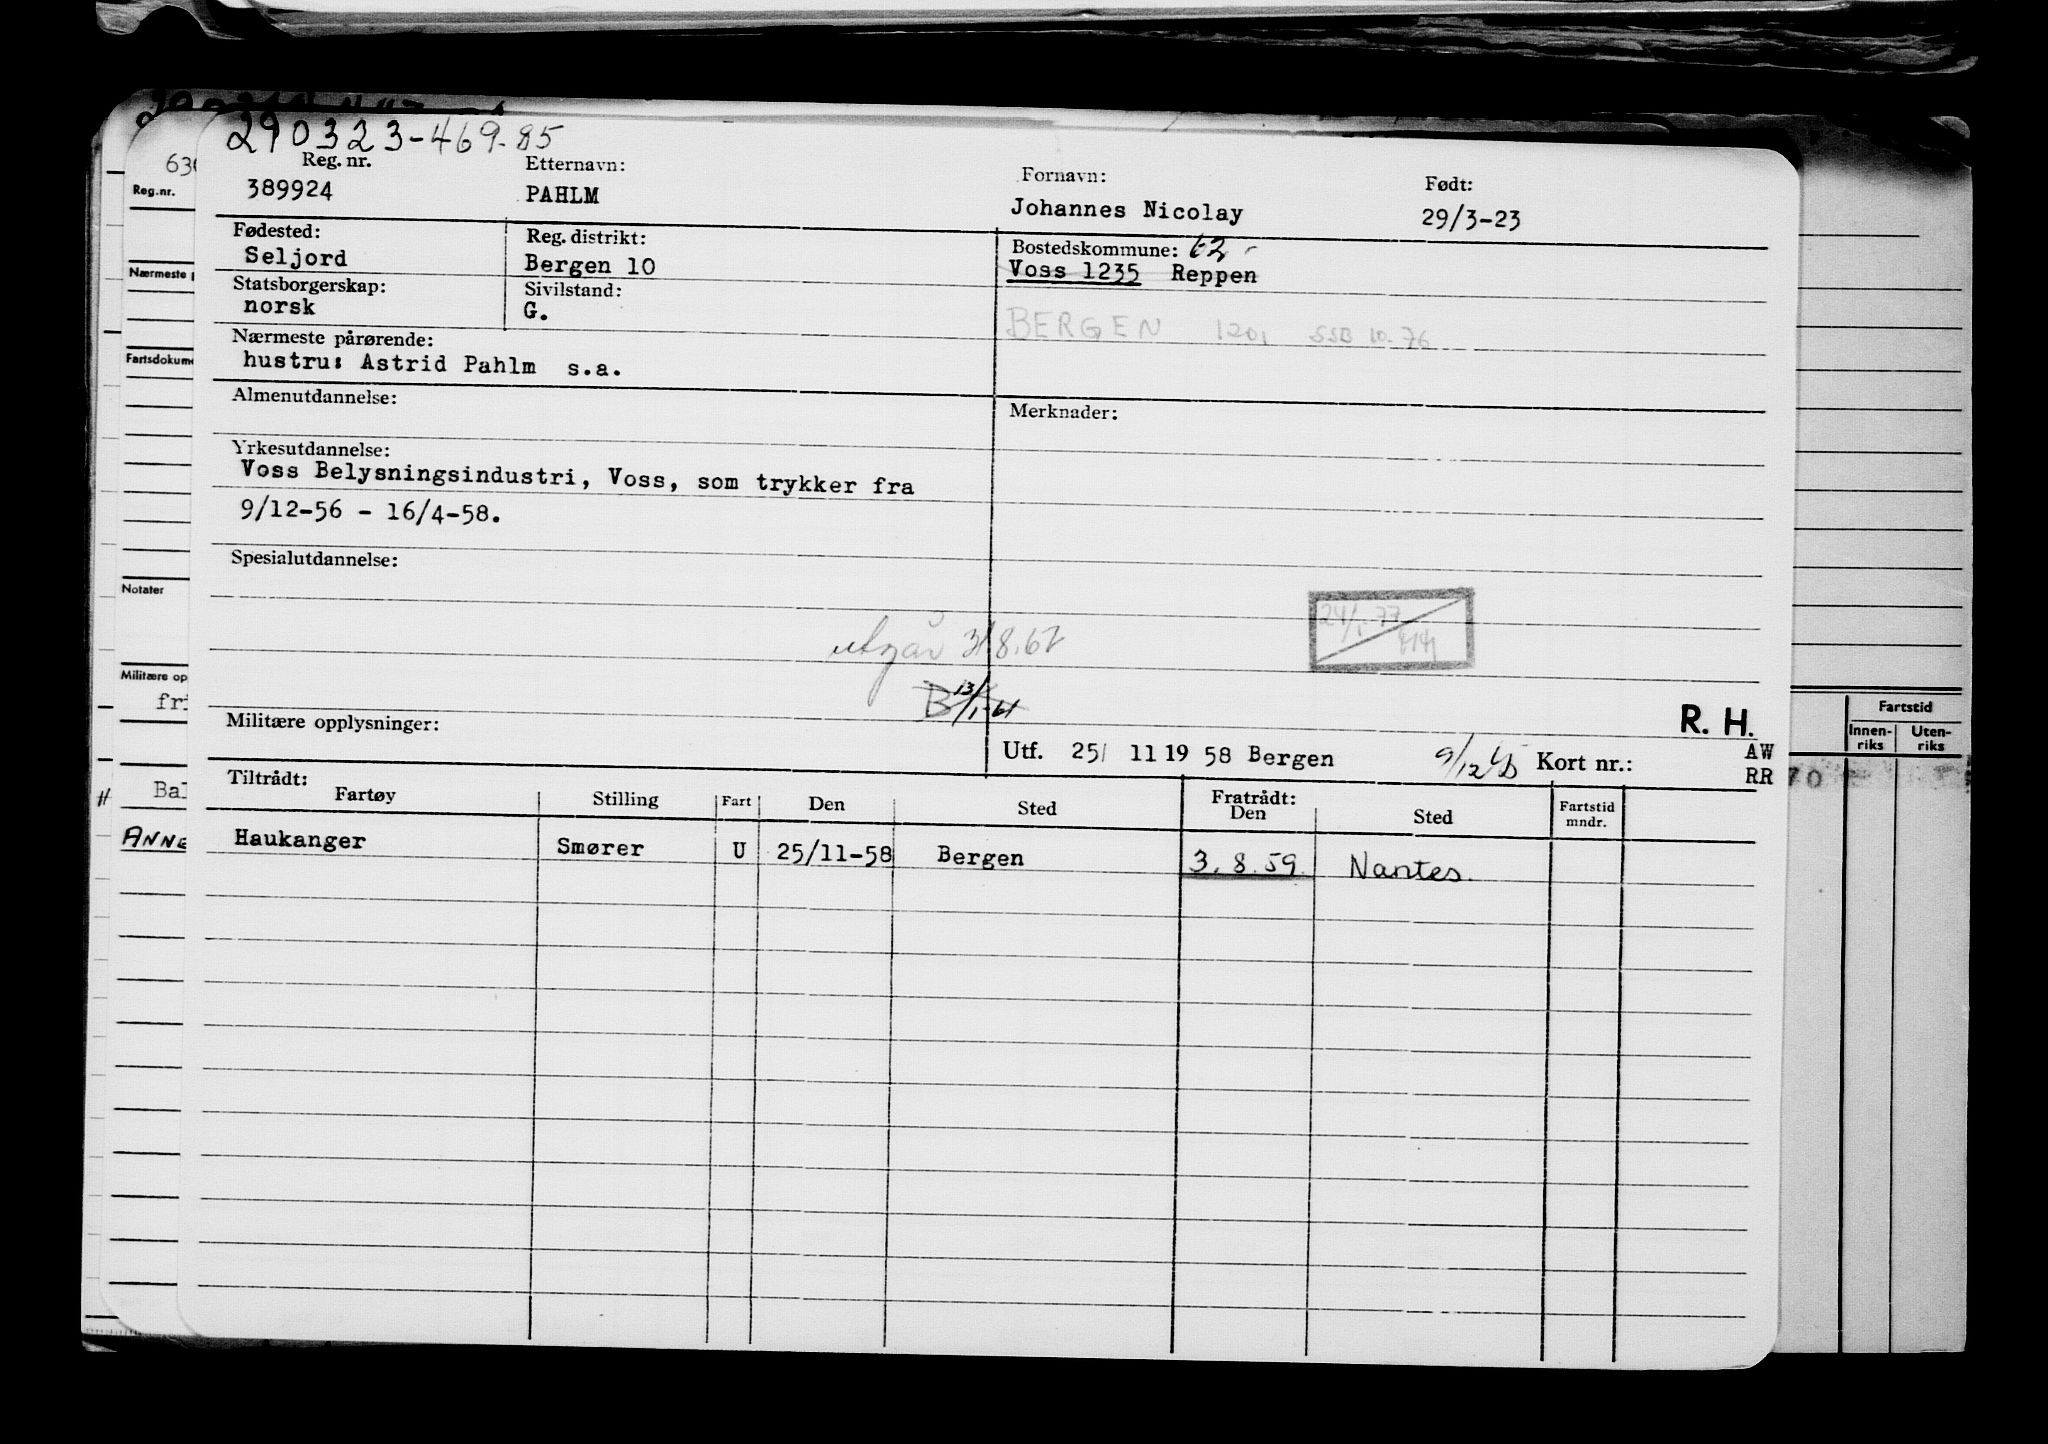 290323-469.85
Reg. nr. Etternavn: Fornavn: Født:
389924 PAHLM Johannes Nicolay 29/3-23
Fødested: Reg. distrikt: Bostedskommune: 62
Seljord Bergen 10 Voss 1235 Reppen
Statsborgerskap: Sivilstand:
norsk G.
BERGEN 1201 SSB 10-76
Nærmeste pårørende:
hustru: Astrid Pahlm s.a.
Almenutdannelse: Merknader:
Yrkesutdannelse:
Voss Belysningsindustri, Voss, som trykker fra
9/12-56 - 16/4-58.
Spesialutdannelse:
24/1-77
utgår 31/8.67
B 13/1-61
R. H.
Militære opplysninger:
Utf. 25/ 11 19 58 Bergen 9/12 Kort nr.: AW
RR
Tiltrådt: Fratrådt:
Fartøy Stilling Fart Den Sted Den Sted Fartstid mndr.
Haukanger Smører U 25/11-58 Bergen 3.8.59. Nantes.
Reg.nr.
Nærmeste
Notater
Militære op
fri
Bal
H
ANNE
Fartstid
Innen-
riks
Uten-
riks
70